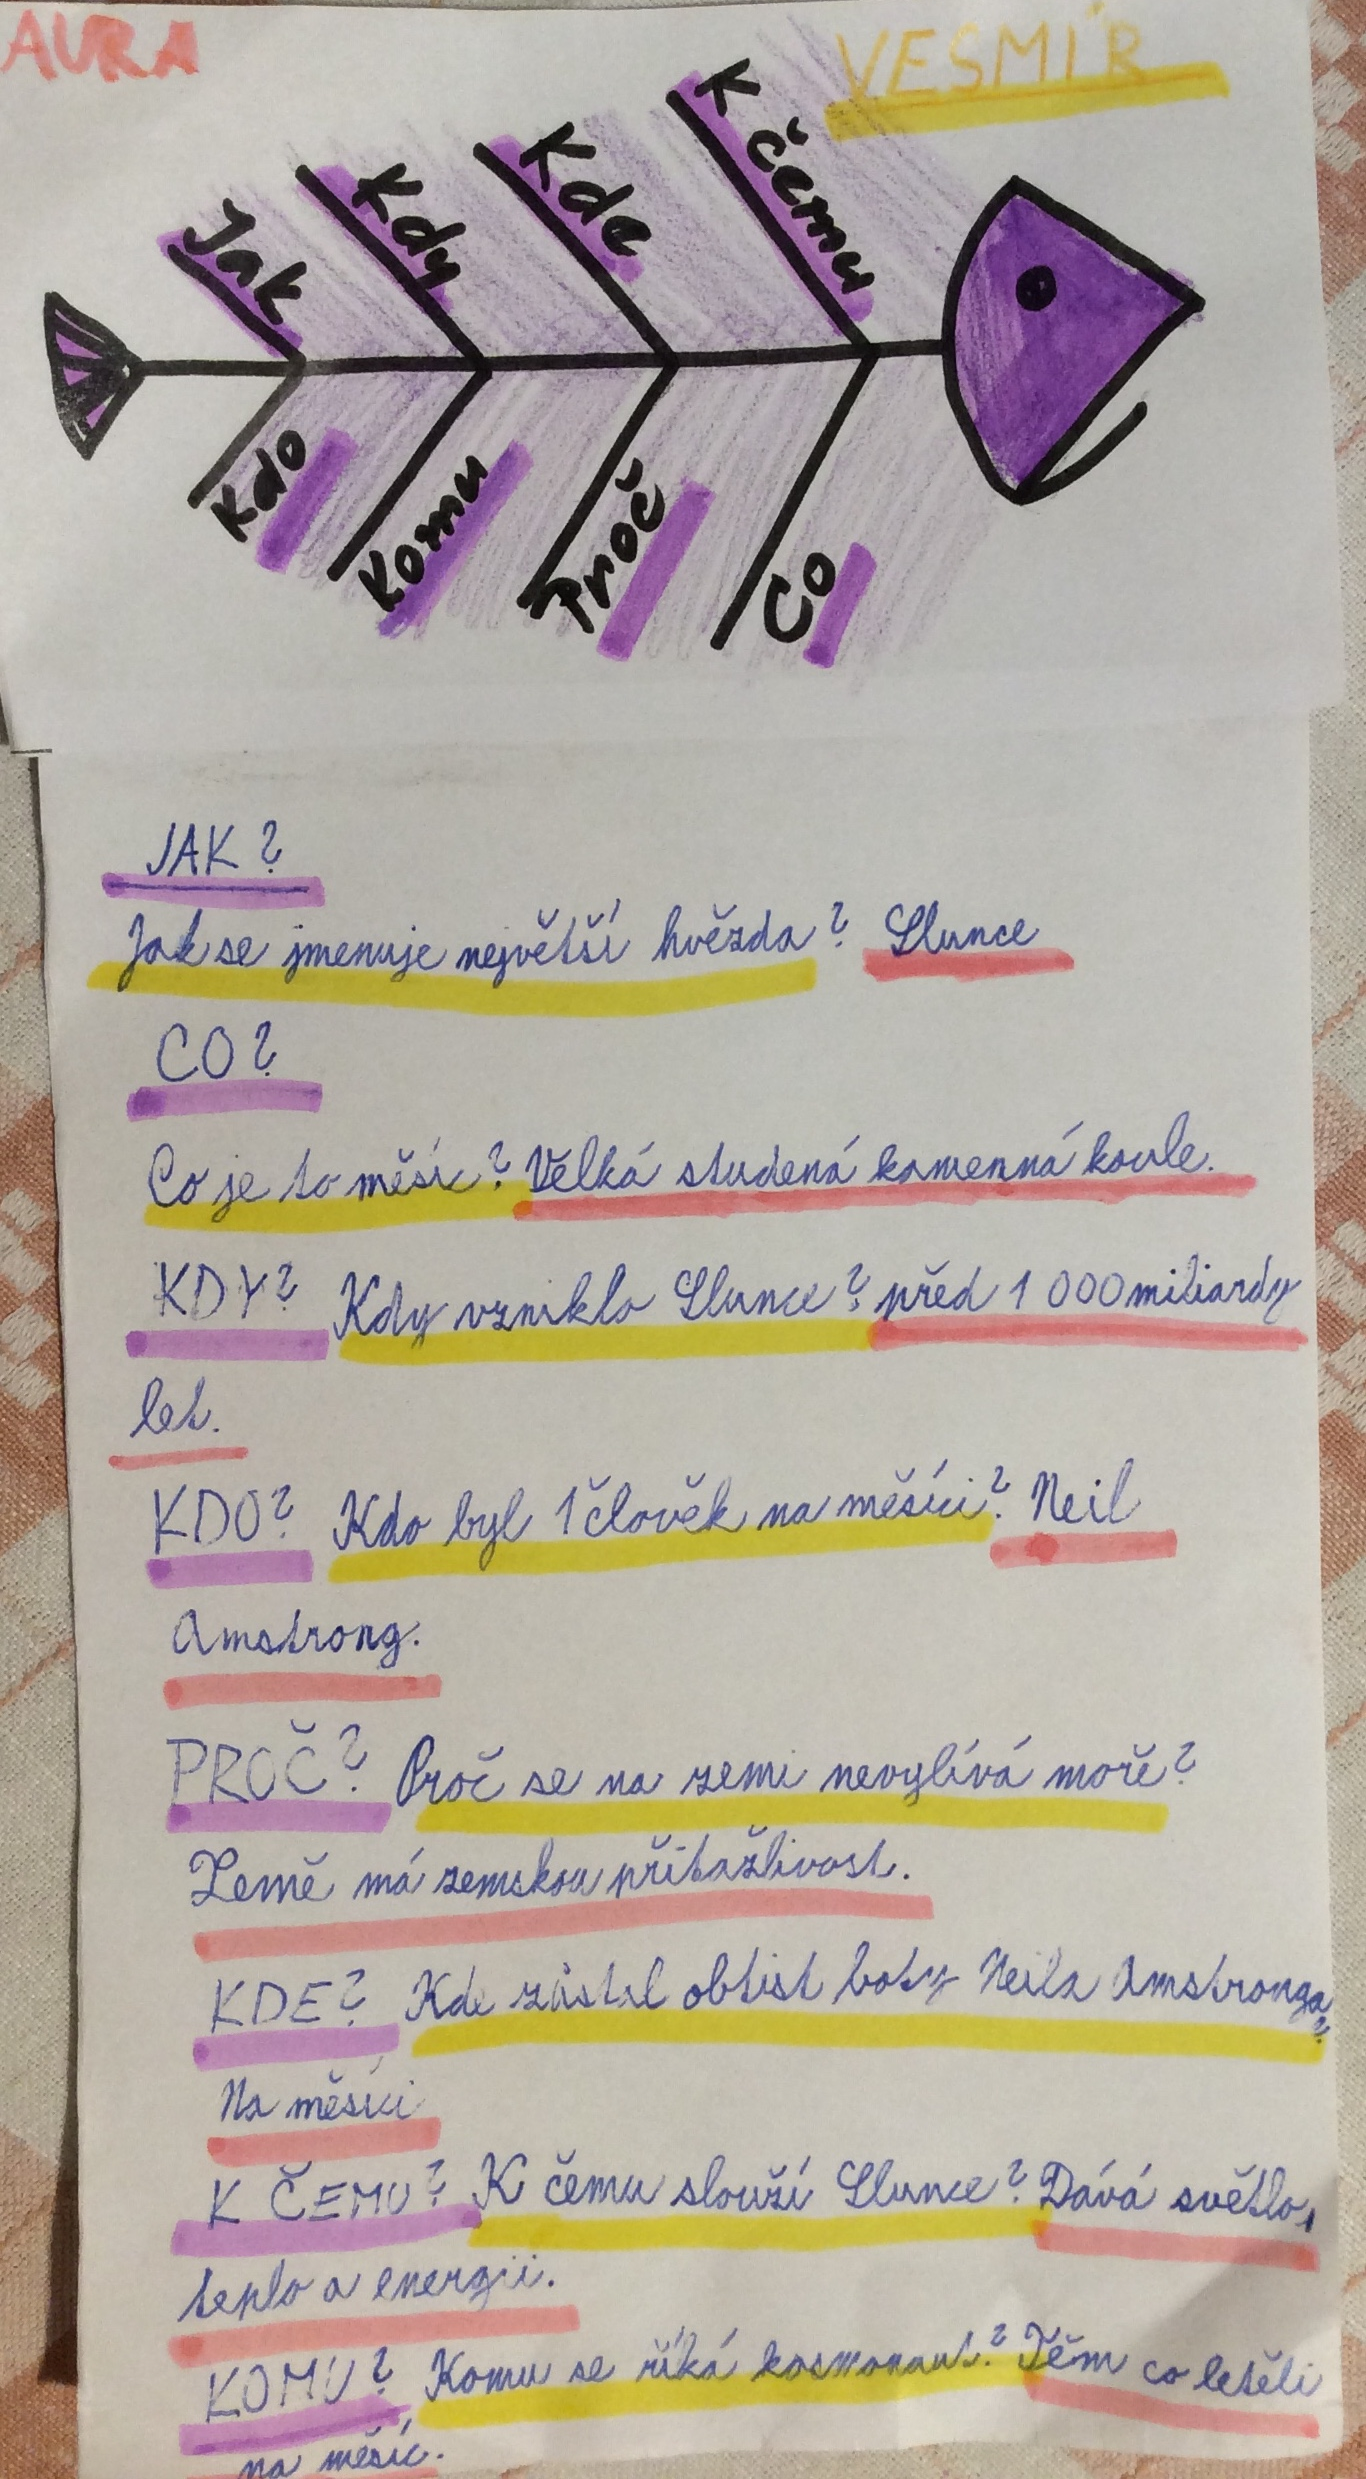 AURA
VESMÍR
Jak
Kdy
Kde
K čemu
Kdo
Komu
Proč
Co
JAK?
Jak se jmenuje největší hvězda? Slunce
CO?
Co je to měsíc? Velká studená kamenná koule.
KDY? Kdy vzniklo Slunce? před 1 000 miliardy
let.
KDO? Kdo byl 1 člověk na měsíci? Neil
Amstrong.
PROČ? Proč se na zemi nevylívá moře?
Země má zemskou přitažlivost.
KDE? Kde zůstal obtist boty Neila Amstronga?
Na měsíci
K ČEMU? K čemu slouží Slunce? Dává světlo,
teplo a energii.
KOMU? Komu se říká kosmonaut? Těm co letěli
na měsíc.